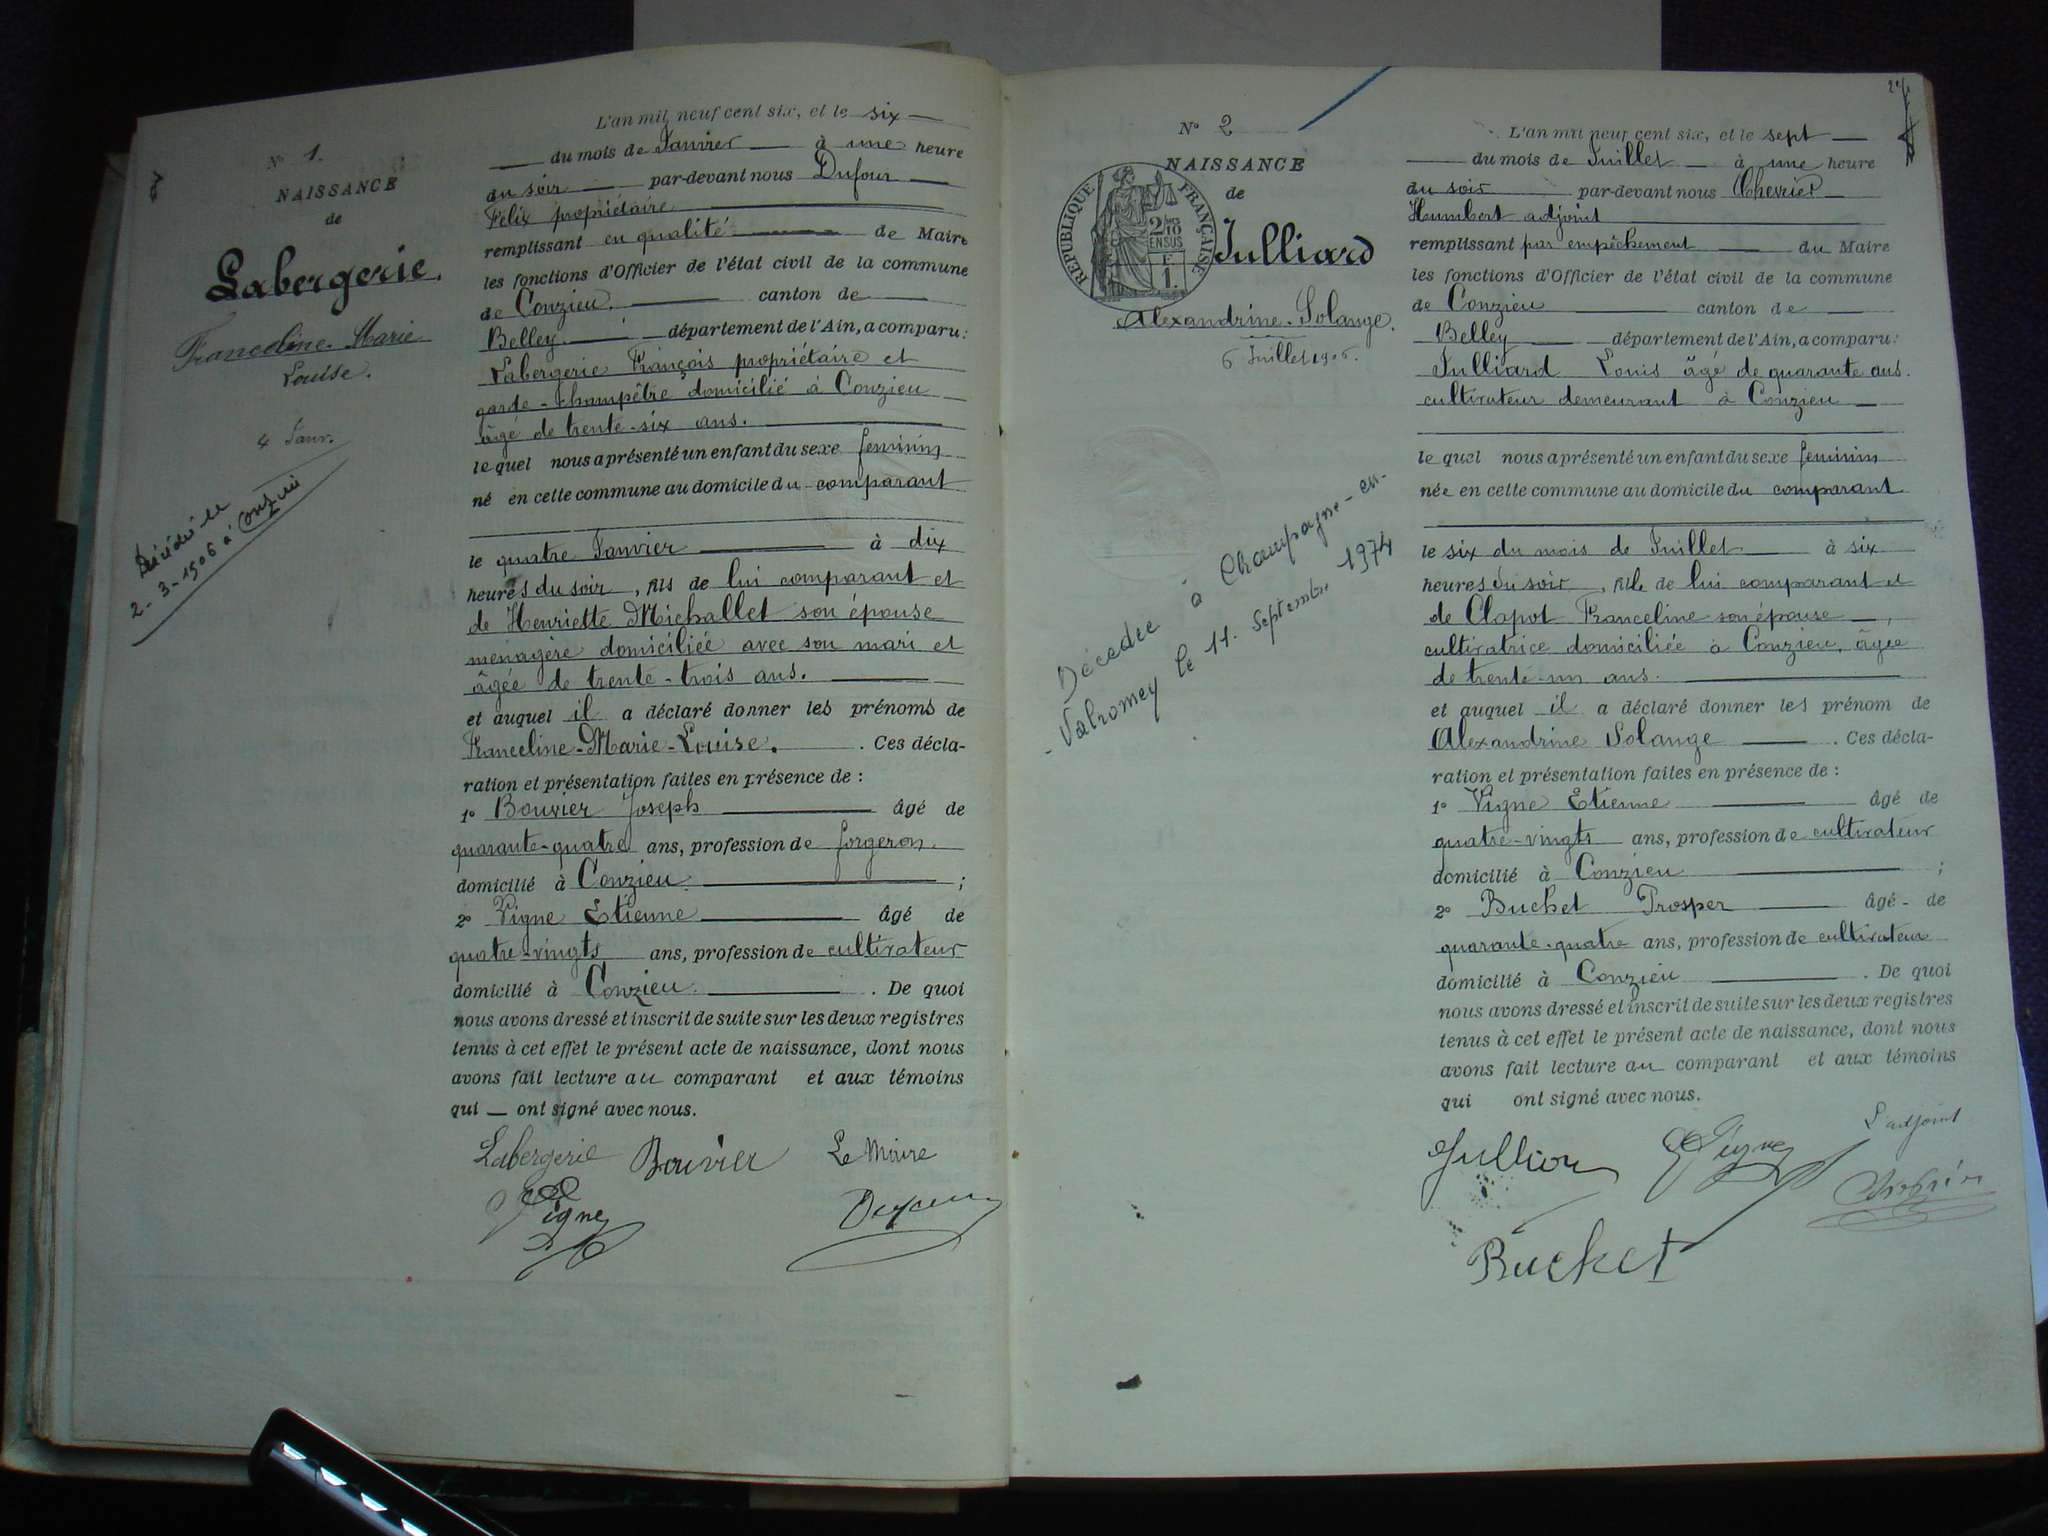 N° 1.
NAISSANCE
de
Labergerie
Franceline-Marie
Louise.
4 Janv.
Décédée le
2-3-1906 à Conzieu
L'an mil neuf cent six, et le six
du mois de Janvier à une heure
du soir par-devant nous Dufour
Félix propriétaire
remplissant en qualité de Maire
les fonctions d'Officier de l'état civil de la commune
de Conzieu canton de
Belley département de l'Ain, a comparu:
Labergerie François propriétaire et
garde-champêtre domicilié à Conzieu
âgé de trente-six ans.
le quel nous a présenté un enfant du sexe feminin
né en cette commune au domicile du comparant
le quatre Janvier à dix
heures du soir, fils de lui comparant et
de Henriette Michallet son épouse
ménagère domiciliée avec son mari et
âgée de trente-trois ans.
et auquel il a déclaré donner les prénoms de
Franceline-Marie-Louise. Ces décla-
ration et présentation faites en présence de :
1° Bouvier Joseph âgé de
quarante-quatre ans, profession de forgeron.
domicilié à Conzieu ;
2° Vigne Etienne âgé de
quatre-vingts ans, profession de cultivateur
domicilié à Conzieu. De quoi
nous avons dressé et inscrit de suite sur les deux registres
tenus à cet effet le présent acte de naissance, dont nous
avons fait lecture au comparant et aux témoins
qui ont signé avec nous.
Labergerie Bouvier Le Maire
Vigne
N° 2
NAISSANCE
de
REPUBLIQUE FRANÇAISE
2/10
EN SUS
1F.
Julliard
Alexandrine-Solange.
6 Juillet 1906.
Décédée à Champagne-en-
-Valromey le 11 Septembre 1974
L'an mil neuf cent six, et le sept
du mois de Juillet à une heure
du soir par-devant nous Chevrier
Humbert adjoint
remplissant par empêchement du Maire
les fonctions d'Officier de l'état civil de la commune
de Conzieu canton de
Belley département de l'Ain, a comparu:
Julliard Louis âgé de quarante ans.
cultivateur demeurant à Conzieu
le quel nous a présenté un enfant du sexe feminin
née en cette commune au domicile du comparant
le six du mois de Juillet à six
heures du soir, fille de lui comparant et
de Clapot Franceline son épouse
cultivatrice domiciliée à Conzieu, âgée
de trente-un ans.
et auquel il a déclaré donner les prénom de
Alexandrine Solange. Ces décla-
ration et présentation faites en présence de :
1° Vigne Etienne âgé de
quatre-vingts ans, profession de cultivateur
domicilié à Conzieu ;
2° Buchet Prosper âgé de
quarante-quatre ans, profession de cultivateur
domicilié à Conzieu. De quoi
nous avons dressé et inscrit de suite sur les deux registres
tenus à cet effet le présent acte de naissance, dont nous
avons fait lecture au comparant et aux témoins
qui ont signé avec nous.
L'adjoint
Vigne
Buchet